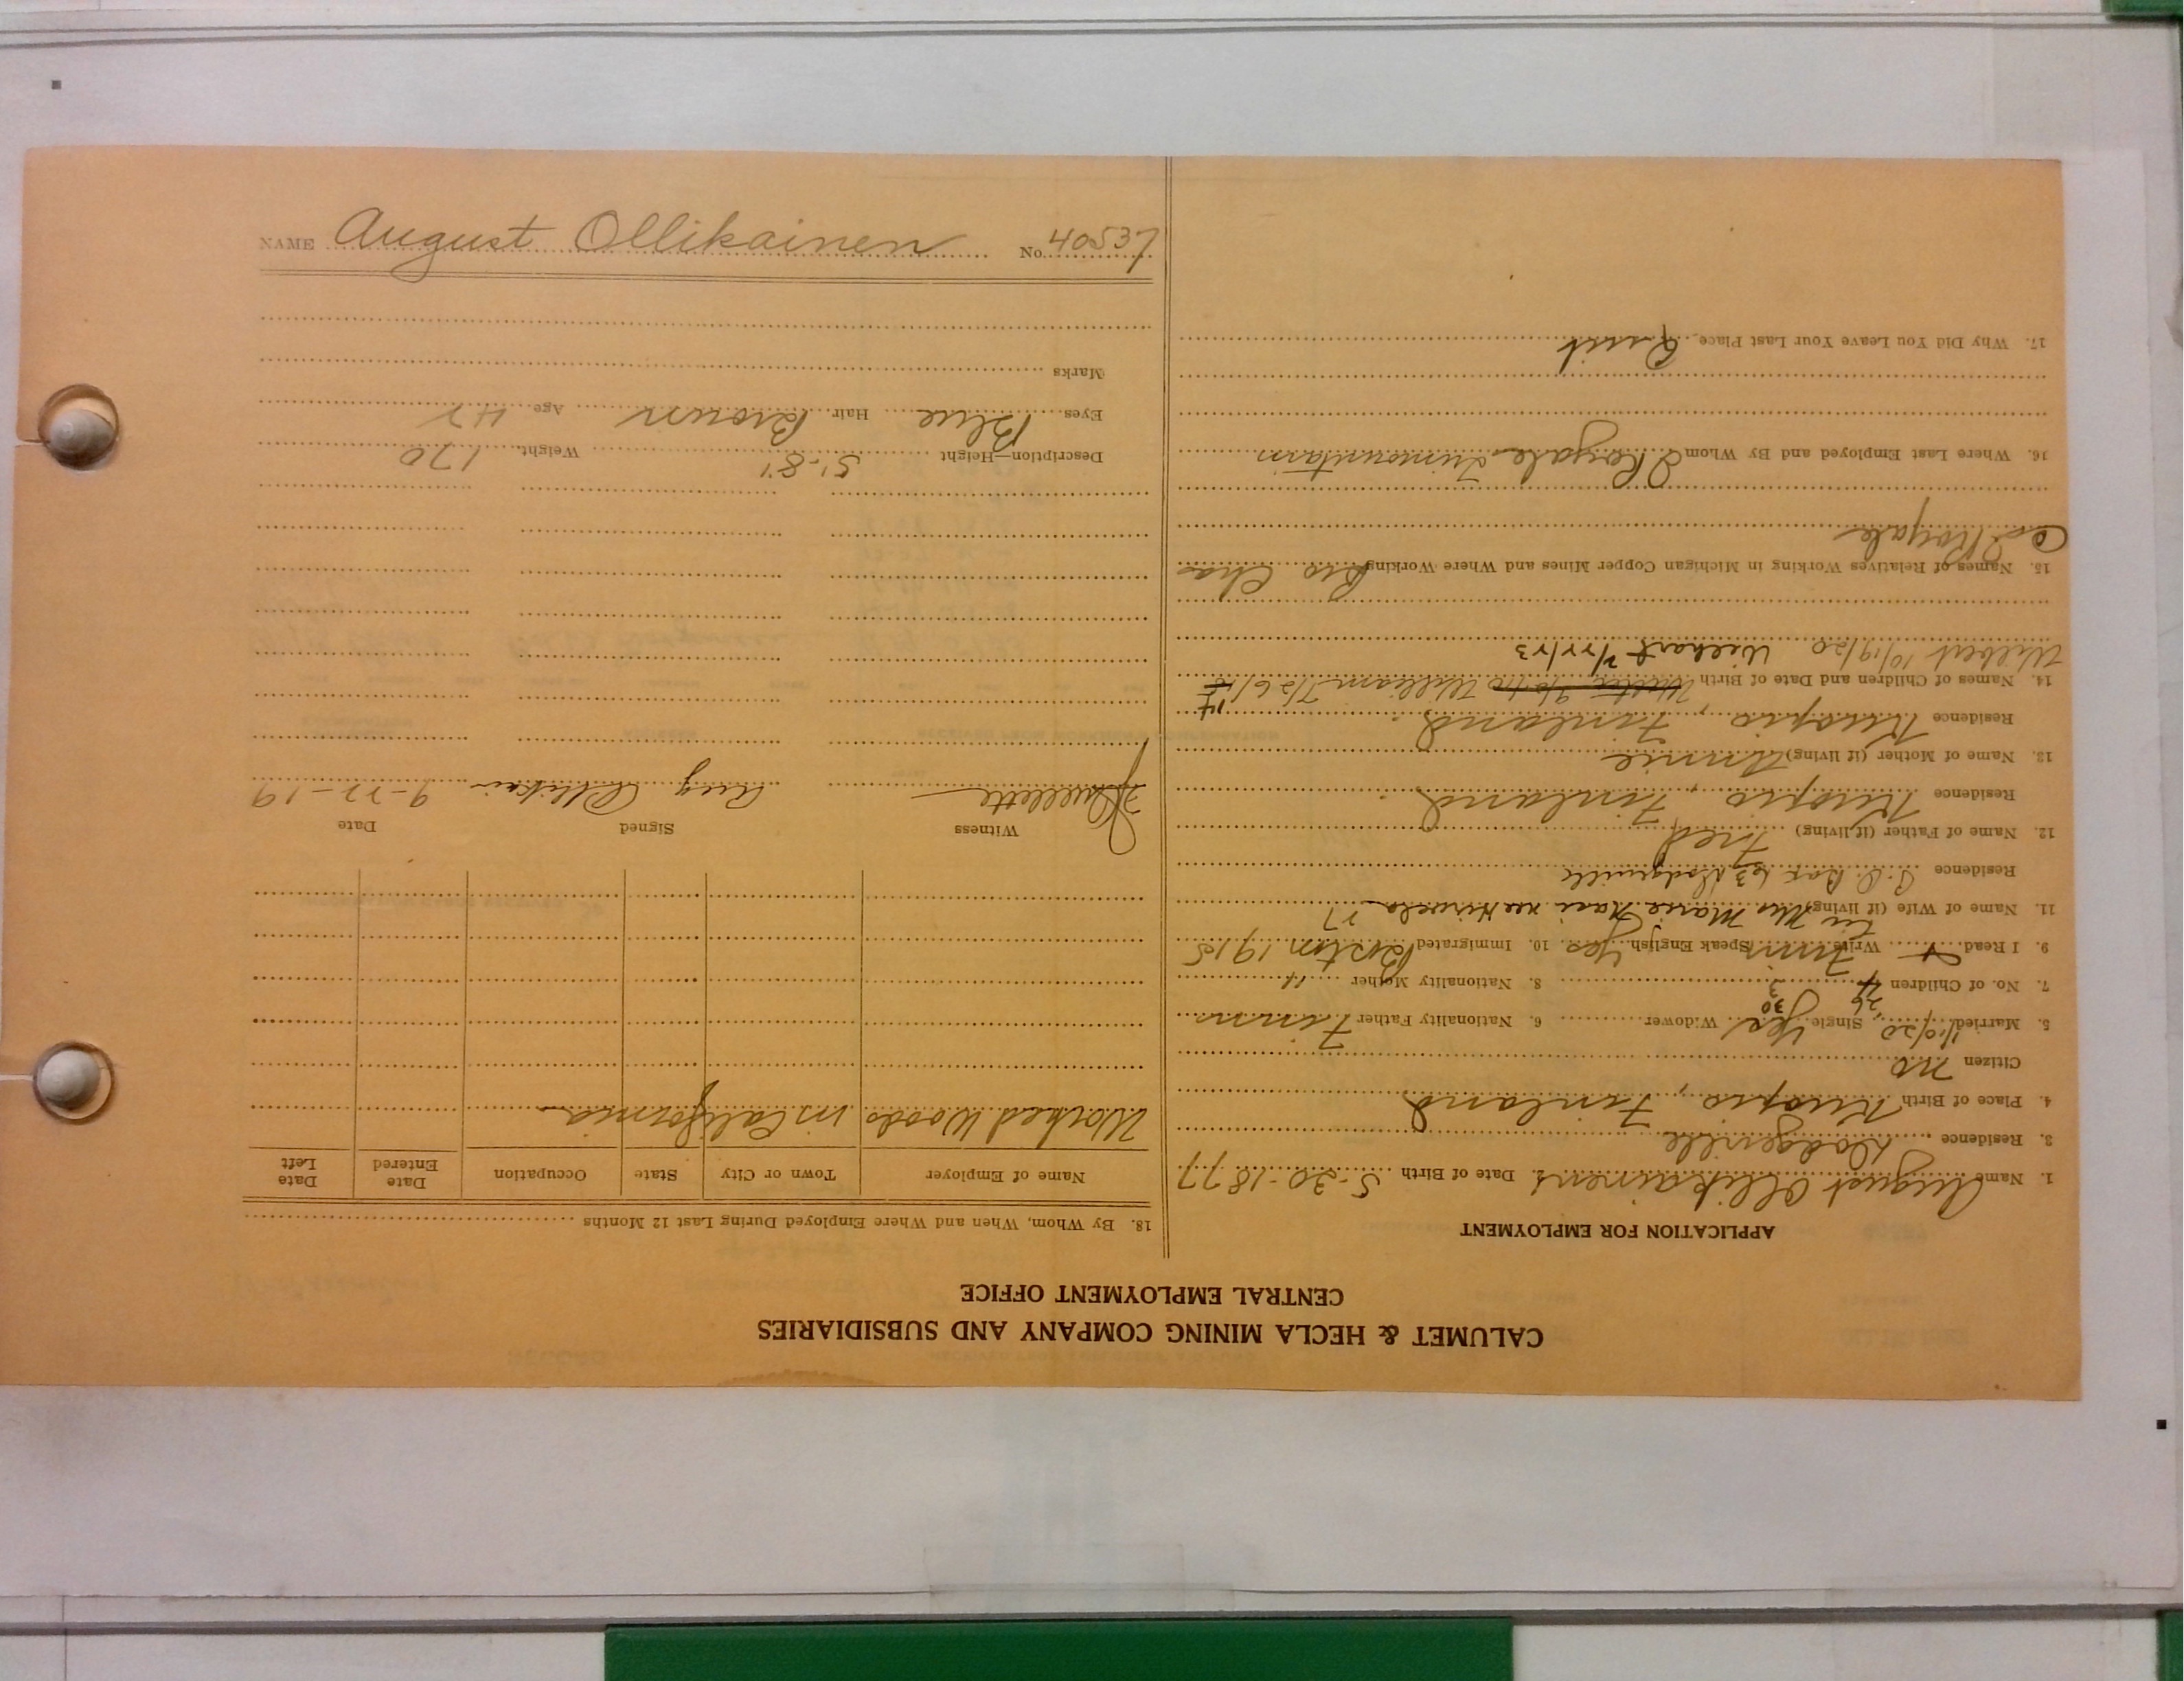 CALUMET & HECLA MINING COMPANY AND SUBSIDIARIES
CENTRAL EMPLOYMENT OFFICE
APPLICATION FOR EMPLOYMENT
1. Name August Ollikainen 2. Date of Birth 5-30-1877
3. Residence Dodgeville
4. Place of Birth Kuopio, Finland
Citizen no
5. Married 11/10/20 Single Yes Widower 6. Nationality Father Finns
7. No. of Children 3 8. Nationality Mother "
9. I Read Write Finn Speak English Yes 10. Immigrated Boston 1915
11. Name of Wife (if living) Mrs Maria nee
Residence P.O. Box 63 Dodgeville
12. Name of Father (if living) Fred
Residence Kuopio, Finland.
13. Name of Mother (if living) Annie
Residence Kuopio, Finland.
14. Names of Children and Date of Birth William 7/26/15
Wilbert 10/19/20 Wilhart 2/22/23
15. Names of Relatives Working in Michigan Copper Mines and Where Working Bro Chas
Royale
16. Where Last Employed and By Whom I Royale Trimountain
17. Why Did You Leave Your Last Place Quit
18. By Whom, When and Where Employed During Last 12 Months
Name of Employer Town or City State Occupation Date Entered Date Left
Worked Woods in California
Witness Signed Date
Ouellette Aug Ollikai 9-22-19
Description—Height 5'-8" Weight 170
Eyes Blue Hair Brown Age 42
Marks
NAME August Ollikainen No. 40537